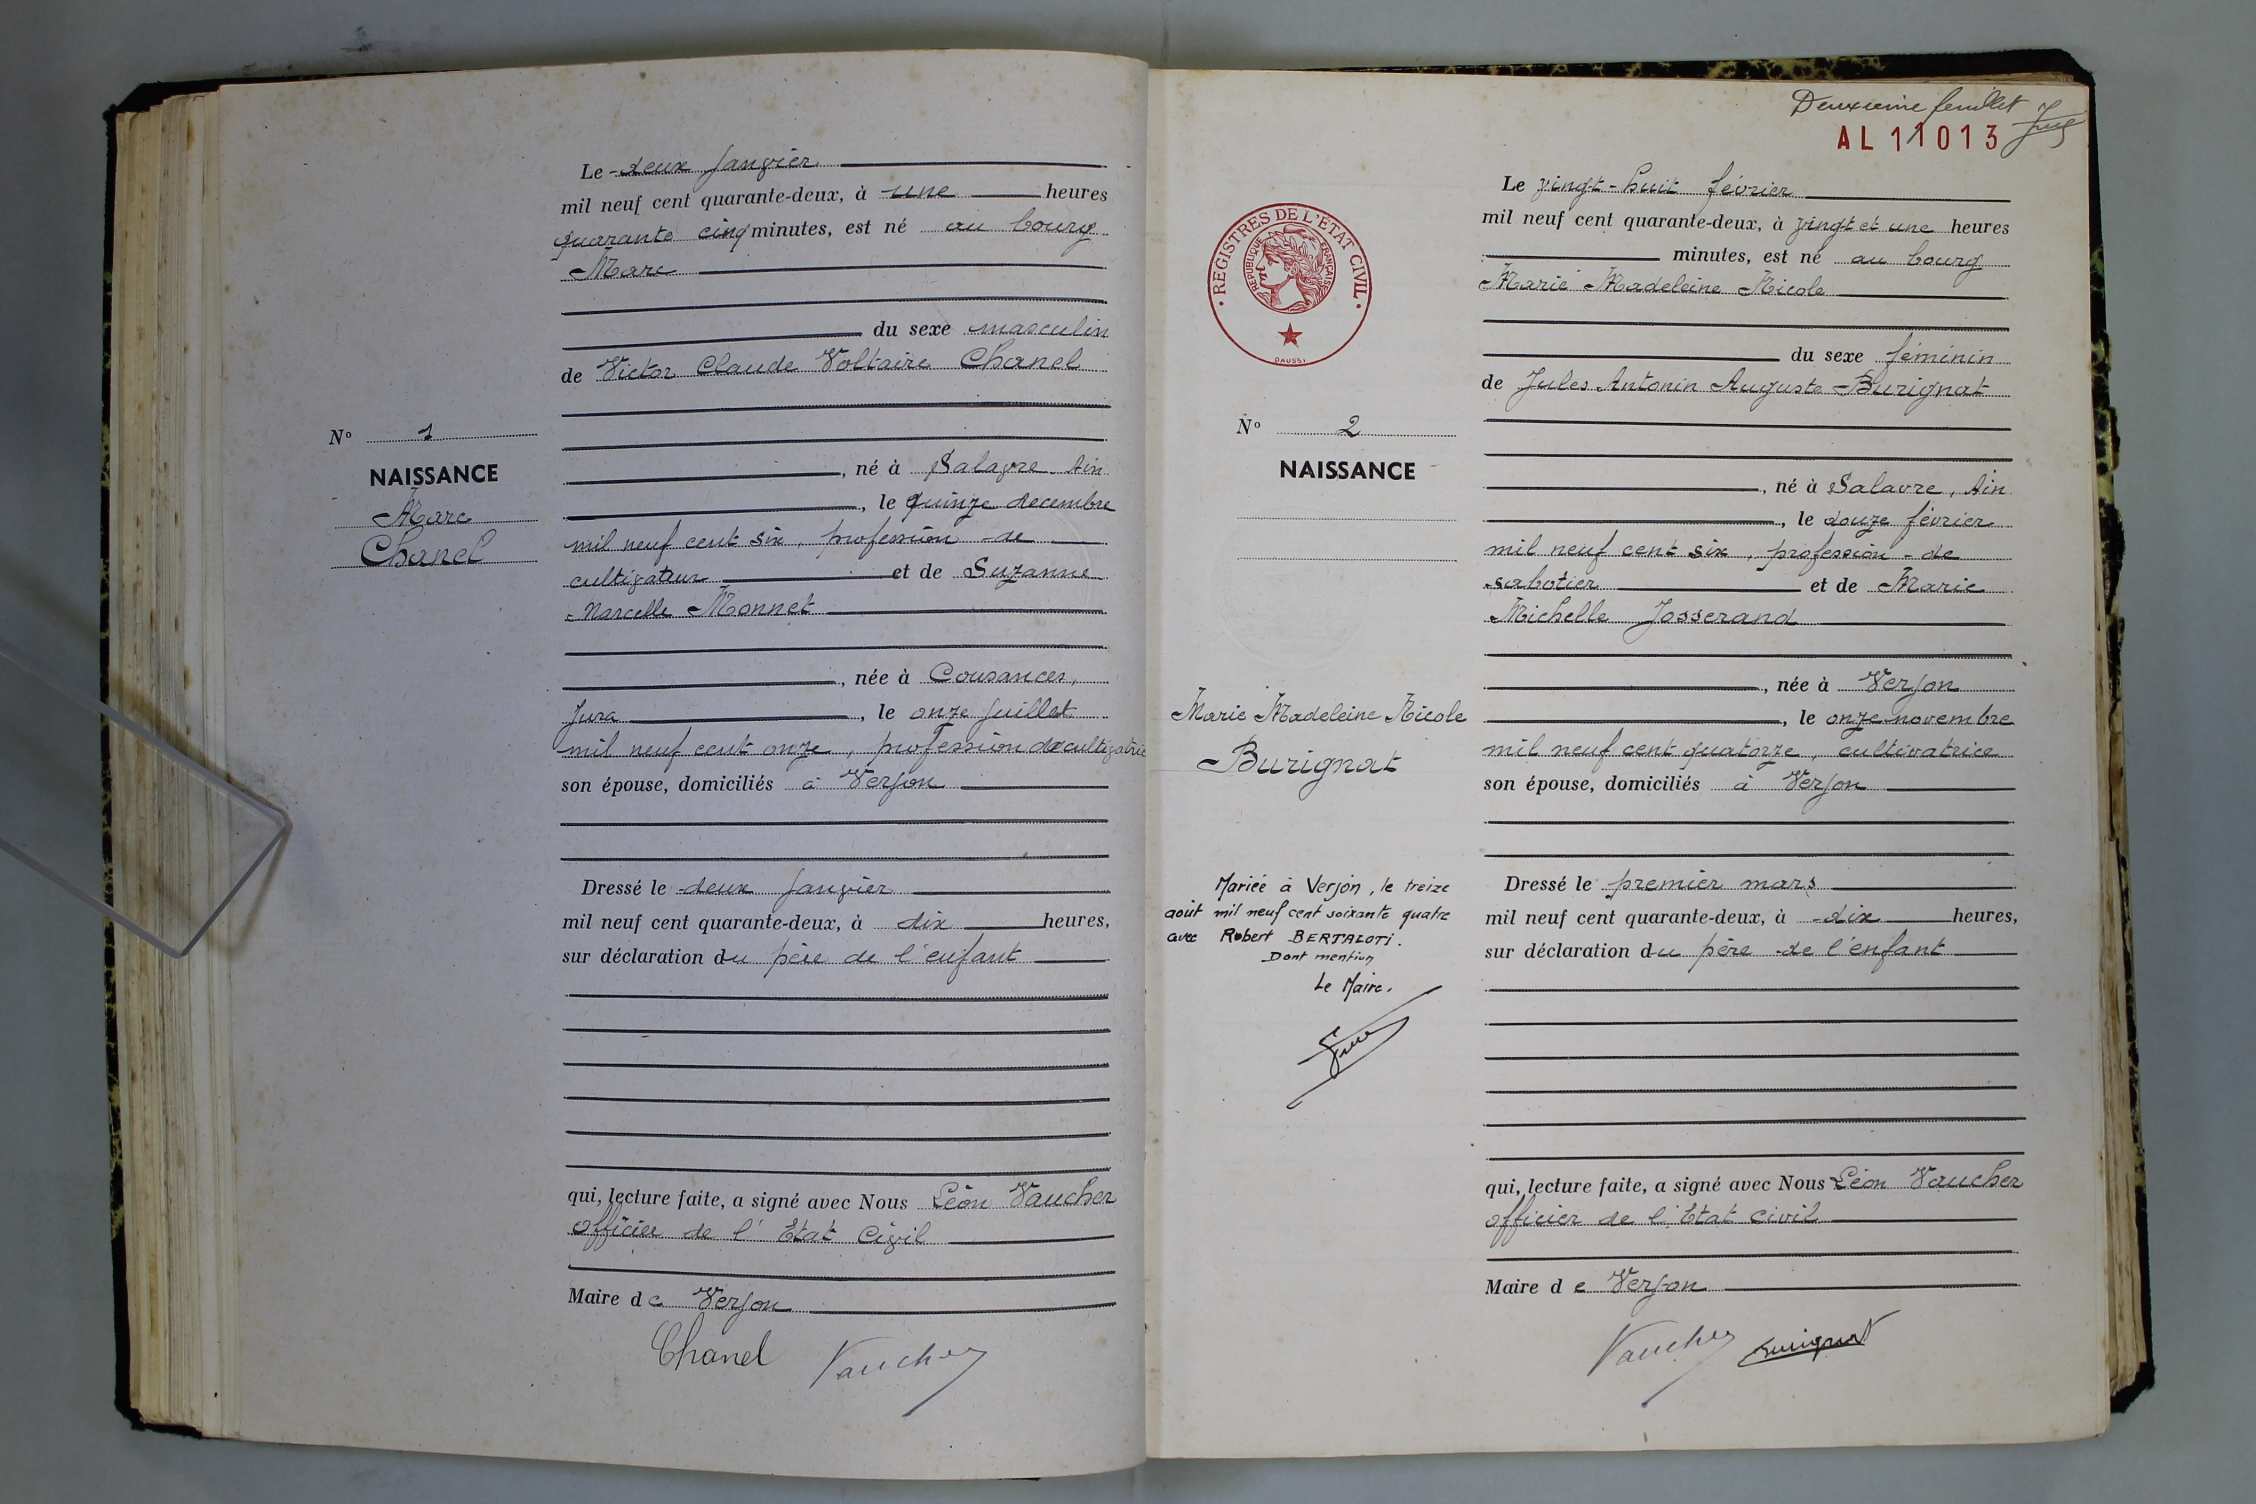 Le deux janvier
mil neuf cent quarante-deux, à une heures
quarante cinq minutes, est né au bourg
Marc
du sexe masculin
de Victor Claude Voltaire Chanel
Nº 1
NAISSANCE
Marc
Chanel
, né à Salavre Ain
, le quinze decembre
mil neuf cent six, profession de
cultivateur et de Suzanne
Marcelle Monnet
, née à Cousances,
Jura , le onze juillet
mil neuf cent onze, profession de cultivatrice
son épouse, domiciliés à Verjon
Dressé le deux janvier
mil neuf cent quarante-deux, à dix heures,
sur déclaration du père de l'enfant
qui, lecture faite, a signé avec Nous Léon Vaucher
officier de l'Etat Civil
Maire de Verjon
Chanel Vaucher
Deuxième feuillet
AL 11013
REGISTRES DE L'ETAT CIVIL
REPUBLIQUE FRANÇAISE
DAUSSY
Le vingt-huit février
mil neuf cent quarante-deux, à vingt et une heures
minutes, est né au bourg
Marie Madeleine Nicole
du sexe féminin
de Jules Antonin Auguste Burignat
Nº 2
NAISSANCE
Marie Madeleine Nicole
Burignat
Mariée à Verjon, le treize
août mil neuf cent soixante quatre
avec Robert BERTALOTI.
Dont mention
Le Maire.
, né à Salavre, Ain
, le douze février
mil neuf cent six, profession de
sabotier et de Marie
Michelle Josserand
, née à Verjon
, le onze novembre
mil neuf cent quatorze, cultivatrice
son épouse, domiciliés à Verjon
Dressé le premier mars
mil neuf cent quarante-deux, à dix heures,
sur déclaration du père de l'enfant
qui, lecture faite, a signé avec Nous Léon Vaucher
officier de l'Etat Civil
Maire de Verjon
Vaucher Burignat